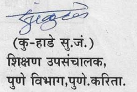 (कु-हाडे सु.जं.)
शिक्षण उपसंचालक,
पुणे विभाग,पुणे.करिता.